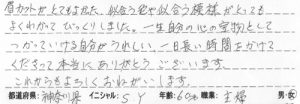 眉カットがとてもよかた、似合う色や似合う模様がとっても
よくわかってびっくりしました。一生自分の心の宝物として
つかっていける自分がうれしい。一日長い時間をかけて
くださって本当にありがとうございます
これからもよろしくおねがいします。
都道府県:神奈川県 イニシャル: S Y 年齢:60代 職業:主婦 男・